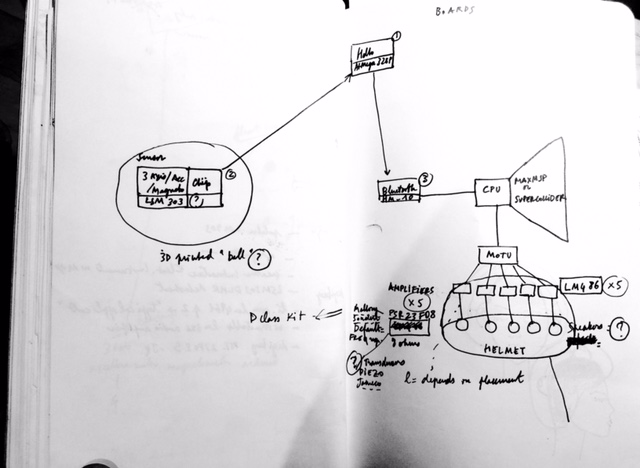 BOARDS
①
Hello
ATMega 328P
Sensor
3 Gyro/Acc
/Magneto
Chip
②
LSM 303
(?)
3D printed "ball" ?
③
Bluetooth
HM-10
CPU
MAXMSP
or
SUPERCOLLIDER
MOTU
AMPLIFIERS
×5
LM486 ×5
D class Kit
Default=
8 ohms
Speakers ?
HELMET
?
Transducers
PIEZO
l = depends on placement